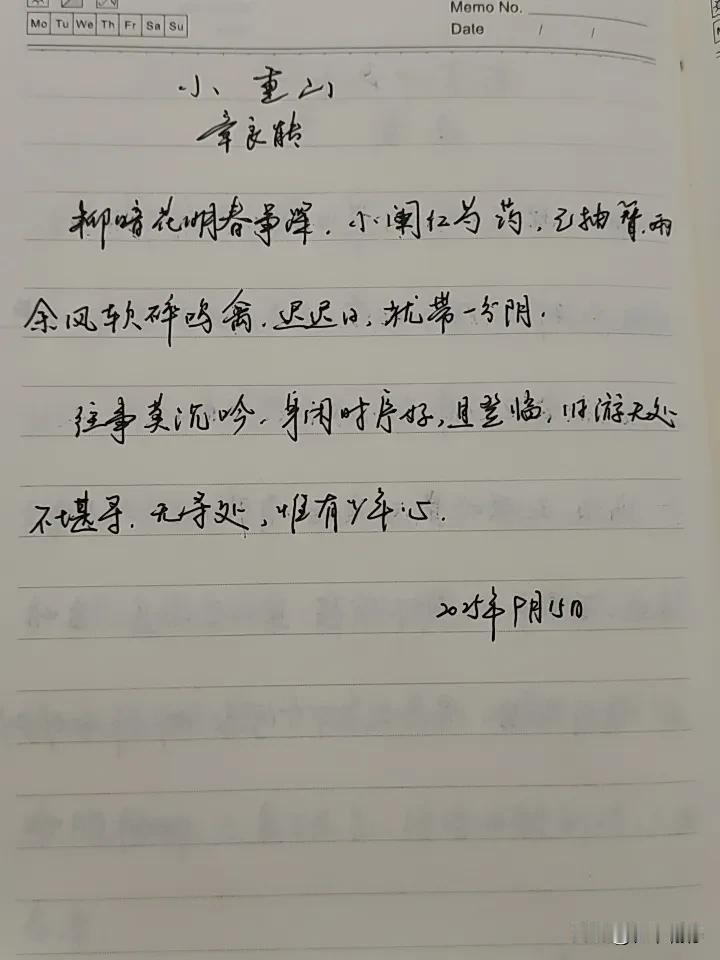 Memo No.
Mo Tu We Th Fr Sa Su
Date / /
小重山
章良能
柳暗花明春事深.小阑红芍药,已抽簪.雨
余风软碎鸣禽.迟迟日,犹带一分阴.
往事莫沉吟.身闲时序好,且登临,旧游无处
不堪寻.无寻处,惟有少年心.
2025年9月15日